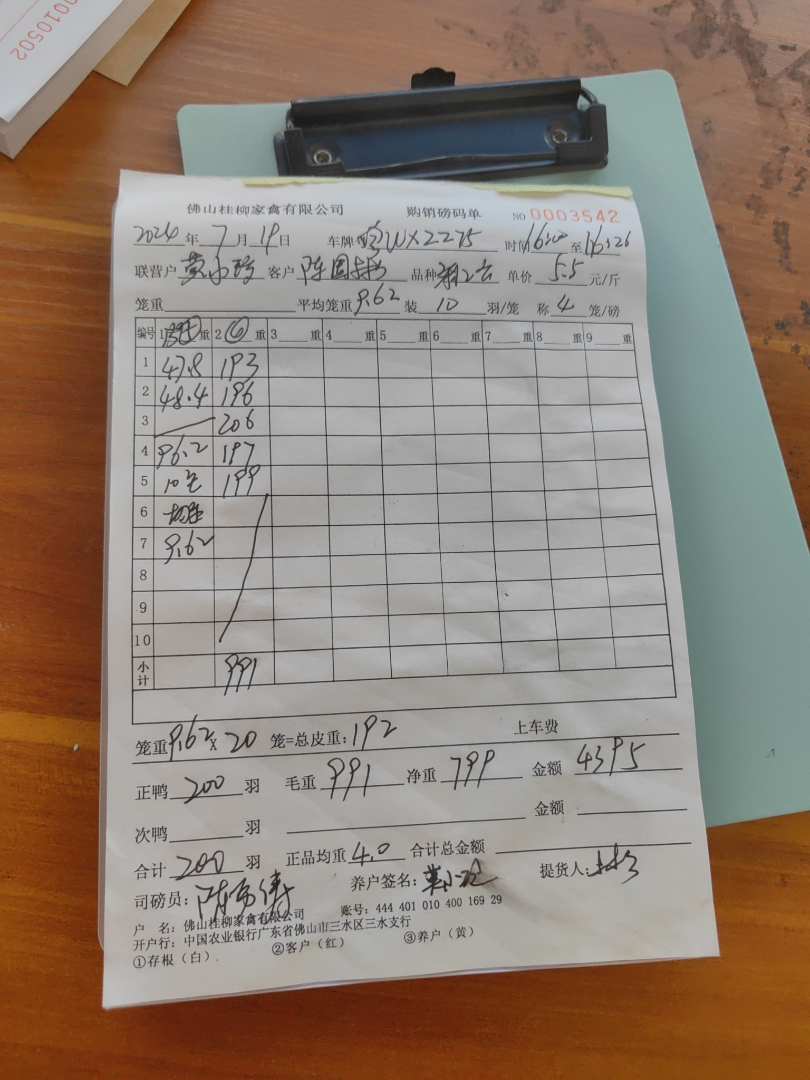 0010502
佛山桂柳家禽有限公司 购销磅码单 NO 0003542
2024年7月19日 车牌 WX2275 时间16:20至16:26
联营户 黄小珍 客户 陈国 品种 单价5.5元/斤
笼重 平均笼重9.62装10羽/笼 称4笼/磅
编号 1 重 2 ⑥ 重 3 重 4 重 5 重 6 重 7 重 8 重 9 重
1 47.8 193
2 48.4 196
3 206
4 96.2 197
5 10笼 199
6
7 9.62
8
9
10
小计 991
笼重9.62×20笼=总皮重:192 上车费
正鸭200羽 毛重991净重799金额4395
次鸭 羽 金额
合计200羽 正品均重4.0合计总金额
司磅员: 养户签名: 提货人:
户 名:佛山桂柳家禽有限公司 账号:444 401 010 400 169 29
开户行:中国农业银行广东省佛山市三水区三水支行
①存根(白) ②客户(红) ③养户(黄)